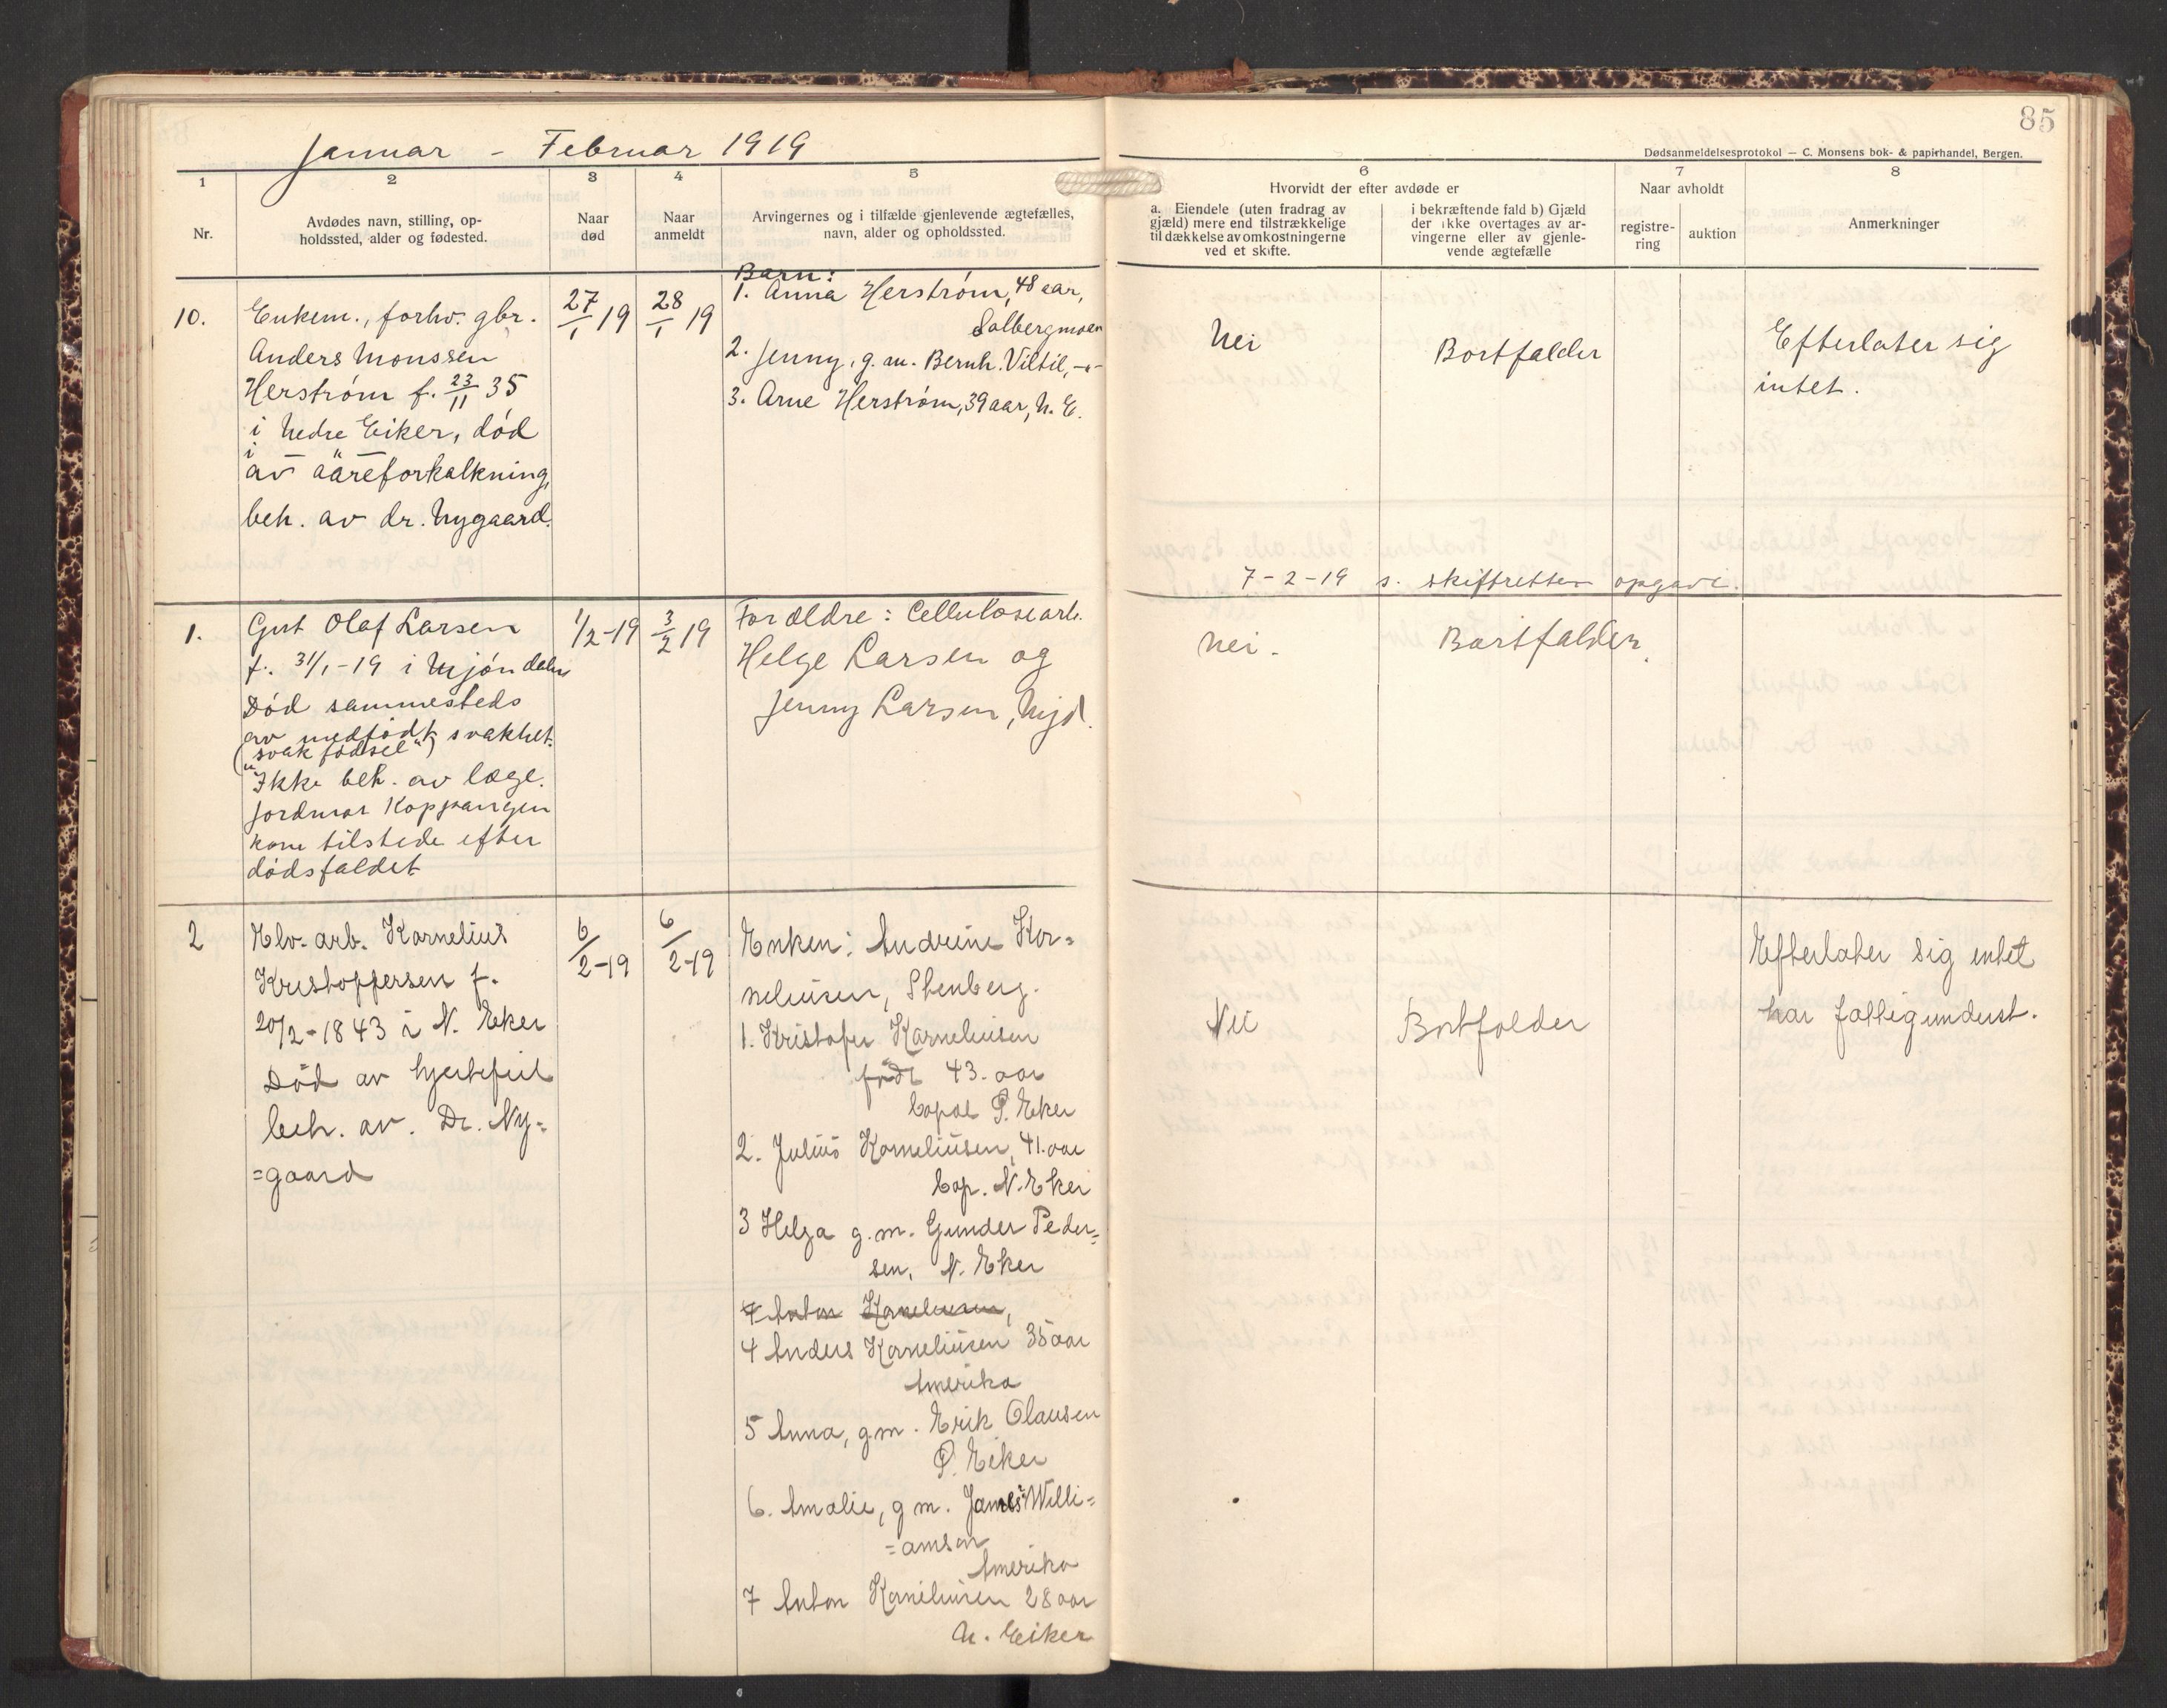 Januar - Februar 1919
85
Dødsanmeldelsesprotokol — C. Monsens bok- & papirhandel, Bergen.
1
2
3
4
5
6
7
8
Nr.
Avdødes navn, stilling, op-
holdssted, alder og fødested.
Naar
død
Naar
anmeldt
Arvingernes og i tilfælde gjenlevende ægtefælles,
navn, alder og opholdssted.
Hvorvidt der efter avdøde er
a. Eiendele (uten fradrag av
gjæld) mere end tilstrækkelige
til dækkelse av omkostningerne
ved et skifte.
i bekræftende fald b) Gjæld
der ikke overtages av ar-
vingerne eller av gjenle-
vende ægtefælle
Naar avholdt
registre-
ring
auktion
Anmerkninger
10.
Enkem., forhv. gbr.
Anders Monssen
Herstrøm f. 23/11 35
i Nedre Eiker, død
i — " —
av aareforkalkning,
beh. av dr. Nygaard.
27/1 19
28/1 19
Barn:
1. Anna Herstrøm, 48 aar,
Solbergmoen
2. Jenny, g. m. Bernh. Viltil, -"-
3. Arne Herstrøm, 39 aar, N. E.
Nei
Bortfalder
Efterlater sig
intet.
7-2-19 s. skifteretten opgave.
1.
Gut Olaf Larsen
f. 31/1-19 i Mjøndalen
Død sammesteds
av medfødt svakhet.
("svak fødsel")
Ikke beh. av læge.
Jordmor Koppangen
kom tilstede efter
dødsfaldet
1/2-19
3/2 19
Forældre: Cellulosearb.
Helge Larsen og
Jenny Larsen, Mjd.
Nei.
Bortfalder.
2
Elv. arb. Kornelius
Kristoffersen f.
20/2-1843 i N. Eker
Død av hjertefeil
beh. av. Dr. Ny=
=gaard
6/2-19
6/2-19
Enken: Andrine Kor=
neliusen, Stenberg.
1. Kristofer Korneliusen
født 43. aar
bopæl Ø. Eker
2. Julius Korneliusen, 41. aar
bop. N. Eker
3 Helga g. m. Gunder Peder=
sen, N. Eker
4 Anton Korneliusen,
4 Anders Korneliusen 35 aar
Amerika
5 Anna, g. m. Erik Olausen
Ø. Eiker
6. Amalie, g m. James Willi=
=amson
Amerika
7 Anton Korneliusen 28 aar
N. Eiker
Nei
Bortfalder
Efterlater sig intet
har fattigunderst.